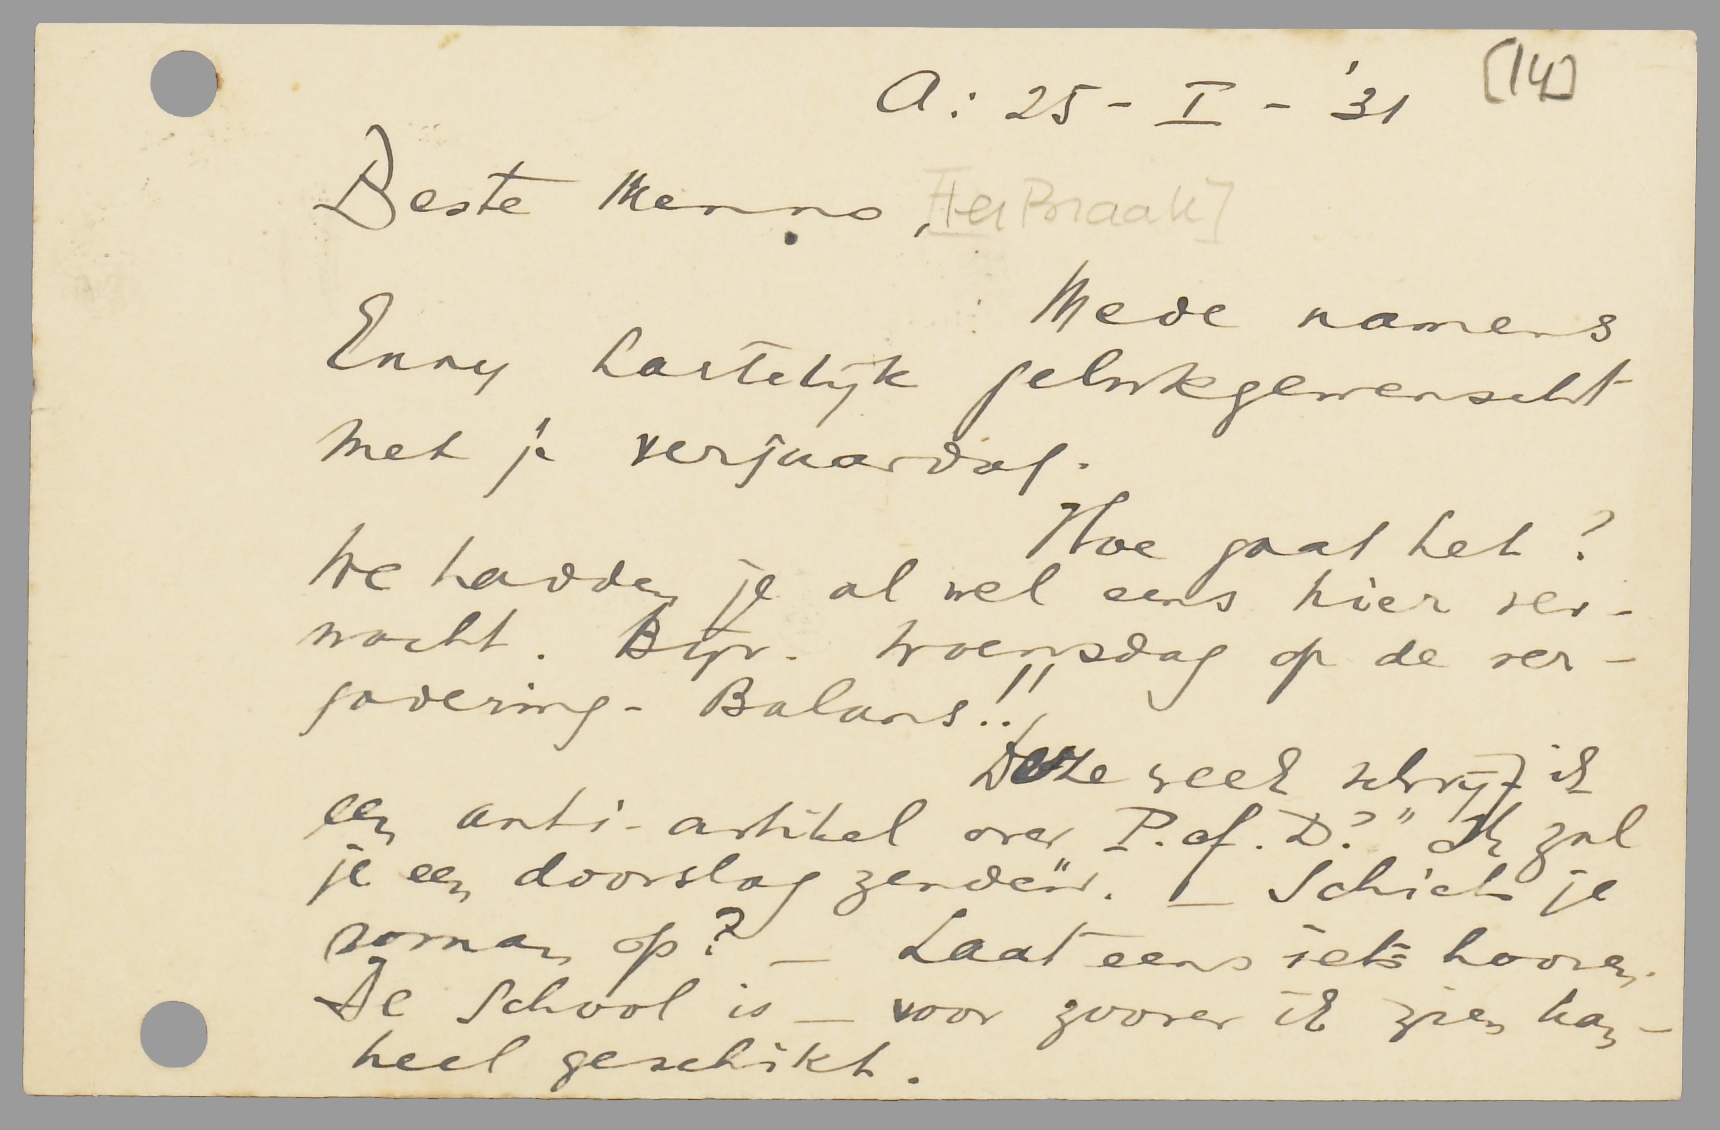 [14]
A: 25 - I - '31
Beste Menno, [ter Braak]
Mede namens
Enny hartelijk gelukgewenscht
met je verjaardag.
Hoe gaat het?
We hadden je al wel eens hier ver-
wacht. Bijv. Woensdag op de ver-
gadering - Balans!!
Deze week schrijf ik
een anti-artikel over P. of. D?" Ik zal
je een doorslag zenden. — Schiet je
roman op? — Laat eens iets hooren.
De School is — voor zoover ik zien kan —
heel geschikt.